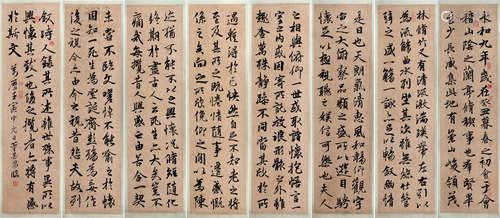 永和九年歲在癸丑暮春之初會于會
稽山陰之蘭亭脩稧事也羣賢畢
至少長咸集此地有崇山峻領茂
林脩竹又有清流激湍暎帶左右引以
為流觴曲水列坐其次雖無絲竹管
弦之盛一觴一詠亦足以暢敘幽情
是日也天朗氣清惠風和暢仰觀宇
宙之大俯察品類之盛所以遊目騁
懷足以極視聽之娛信可樂也夫人
之相與俯仰一世或取諸懷抱悟言一
室之內或因寄所託放浪形骸之外雖
趣舍萬殊靜躁不同當其欣於所
遇暫得於己怏然自足不知老之將
至及其所之既惓情隨事遷感慨
係之矣向之所欣俛仰之間以為陳
迹猶不能不以之興懷況脩短隨化
終期於盡古人云死生亦大矣豈不
痛哉每攬昔人興感之由若合一契
未嘗不臨文嗟悼不能喻之於懷
固知一死生為虛誕齊彭殤為妄作
後之視今亦由今之視昔悲夫故列
敘時人錄其所述雖世殊事異所以
興懷其致一也後之攬者亦將有感
於斯文 萬曆壬寅中元 董其昌臨